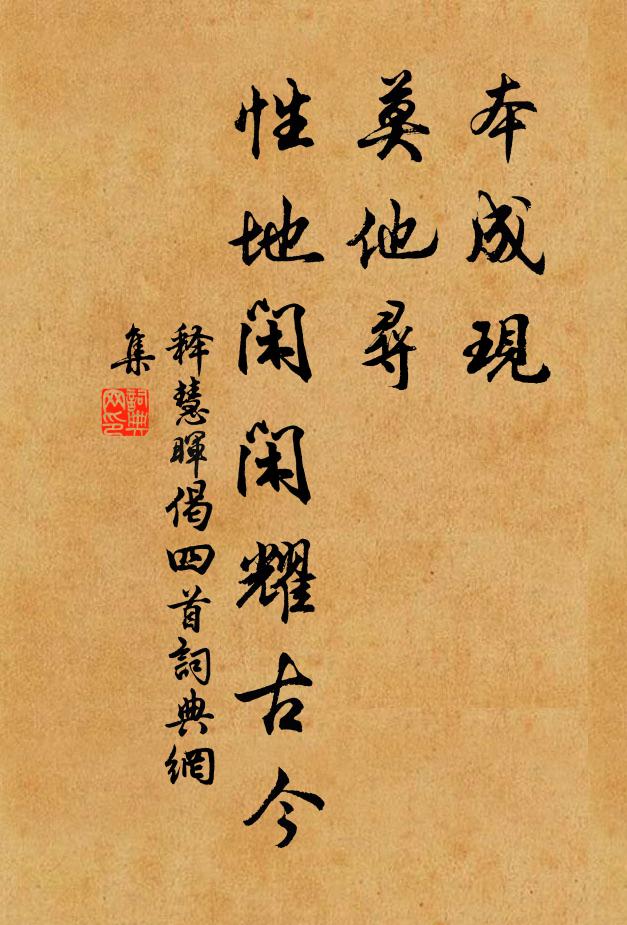 本成現
莫他尋
性地闲闲耀古今
释慧暉偈四首詞典網
集
詞典
网印